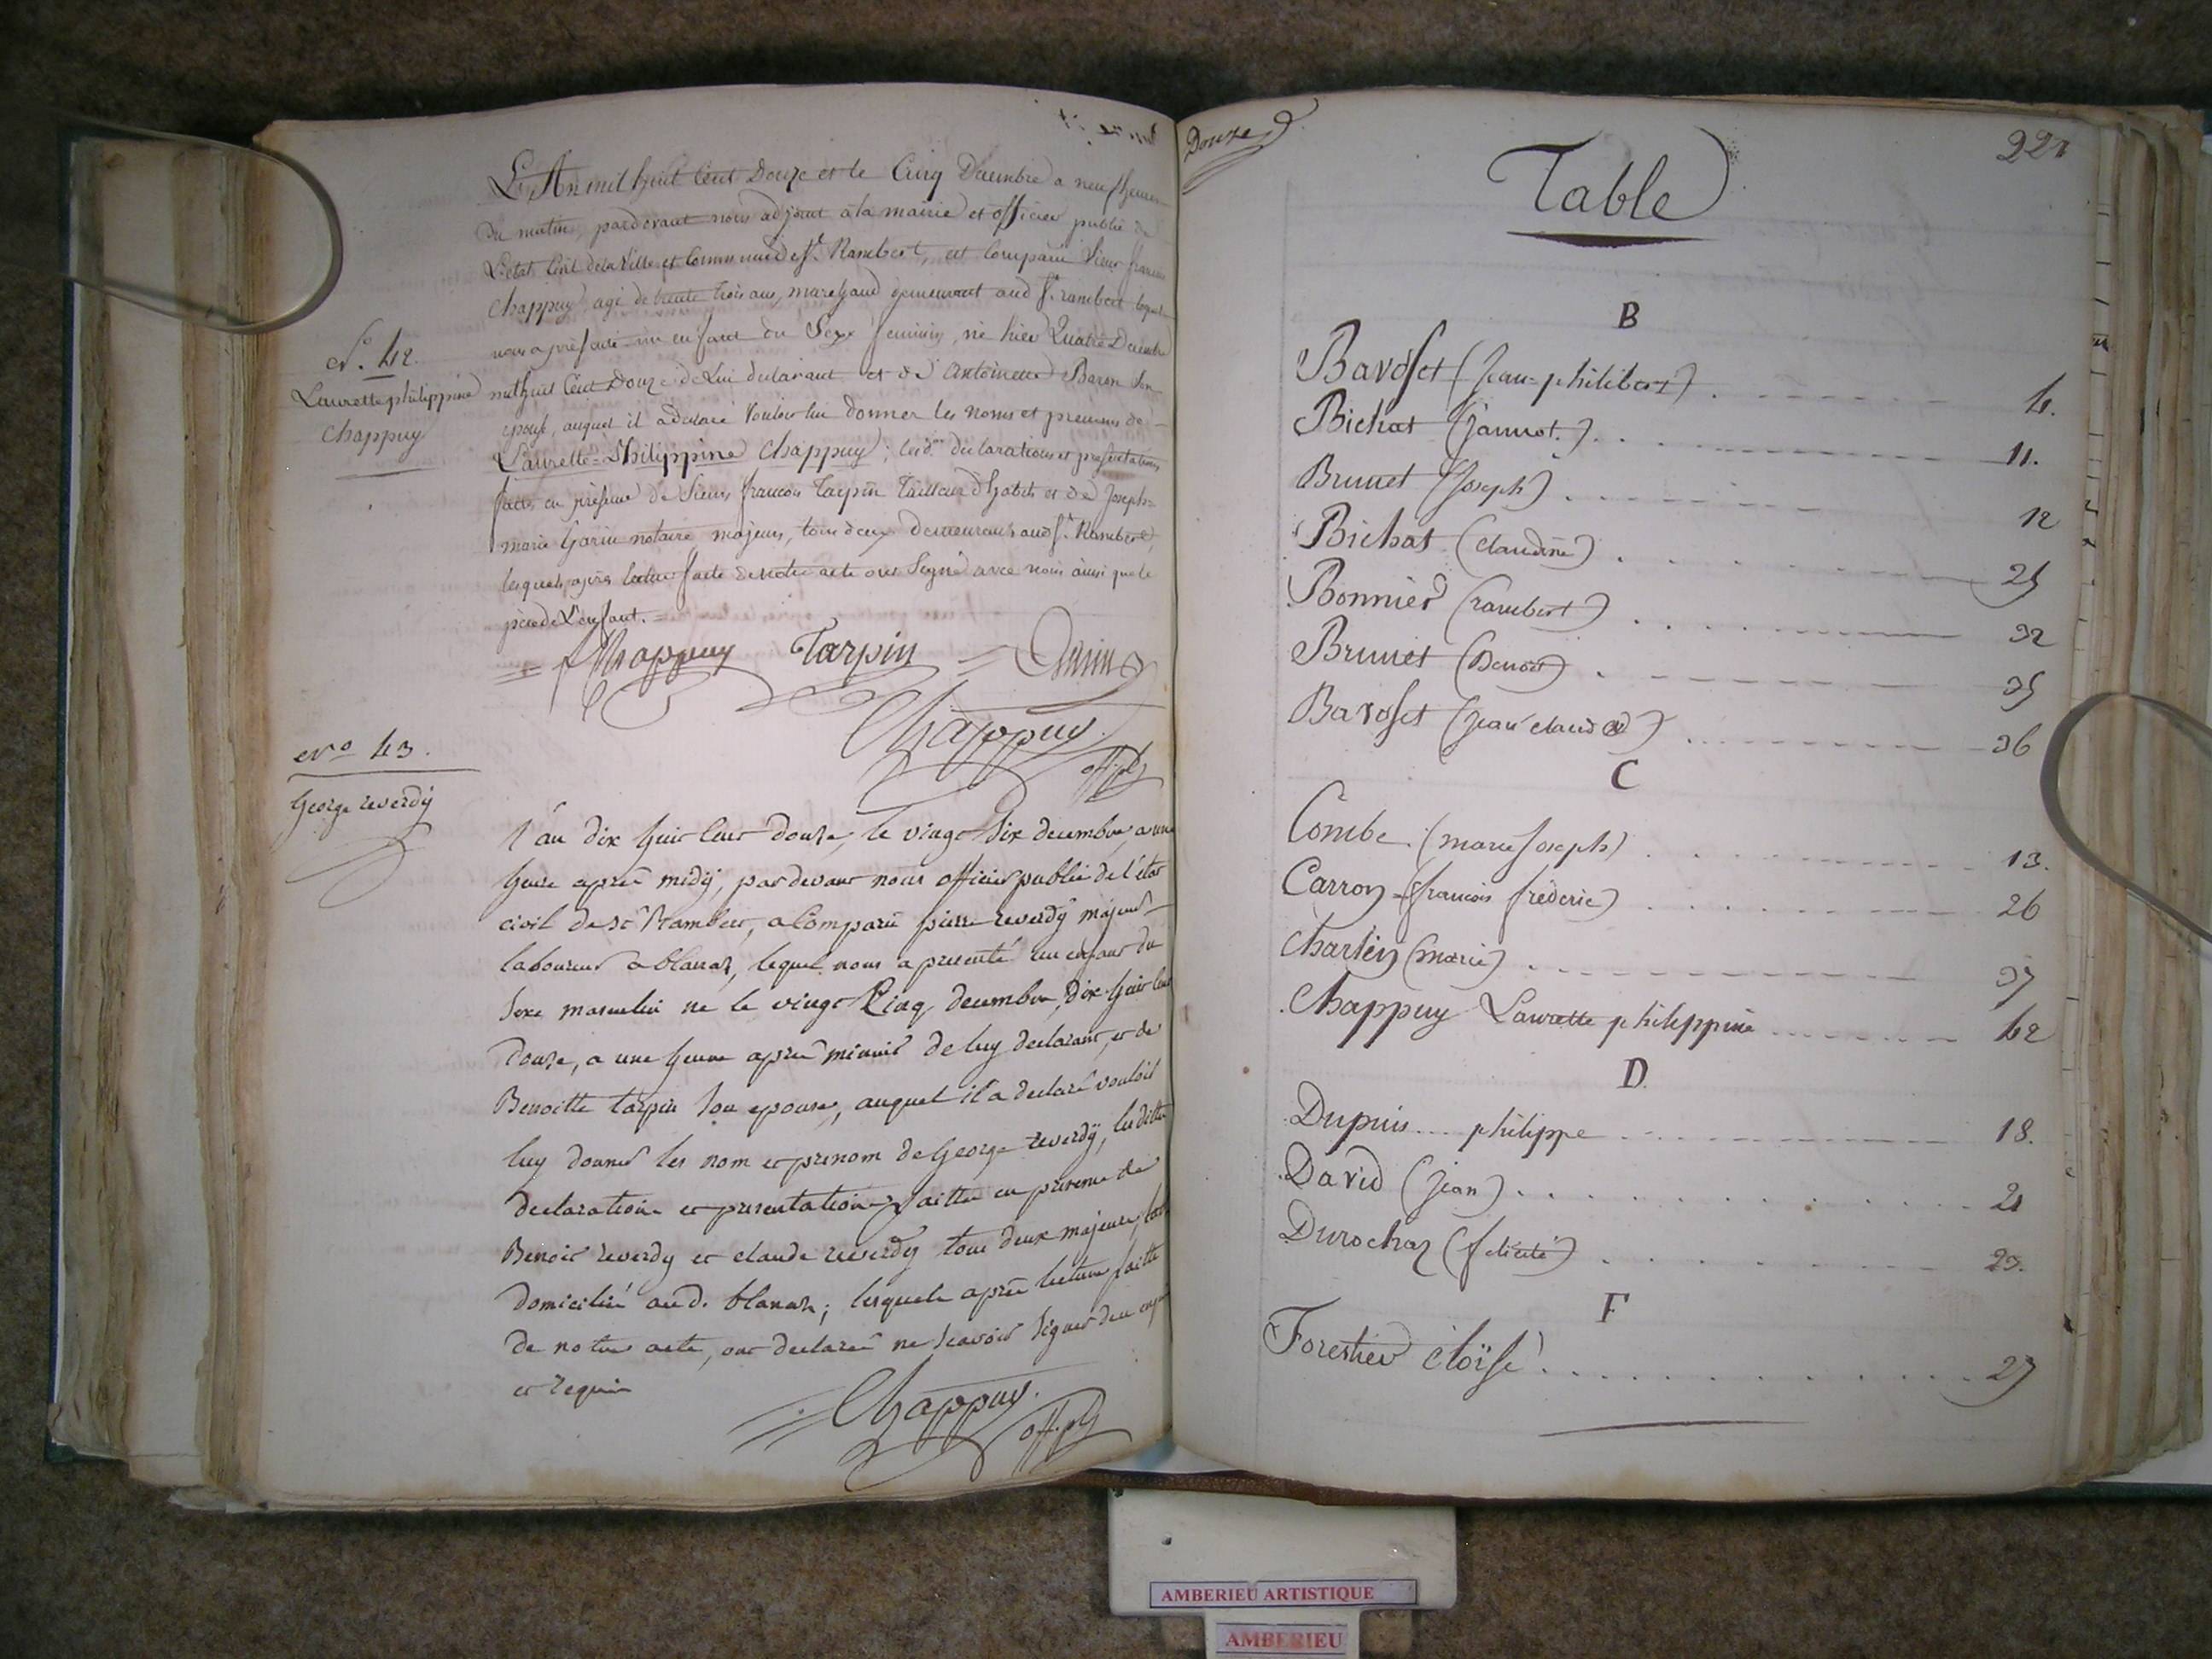 L'An mil huit Cent Douze et le Cinq Decembre a neuf heures
Du matin, pardevant nous adjoint a la mairie et officier public de
L'etat Civil de la Ville et Commune de St. Rambert, est Comparu Sieur francois
Chappuy, agé de trente trois ans, marchand demeurant aud St. rambert lequel
nous a présenté un enfant du Sexe feminin, né hier Quatre Decembre
N°. 42.
Laurette philippine
Chappuy
mil huit Cent Douze de Lui declarant et de Antoinette Baron Son
epouse, auquel il a declaré Vouloir lui donner les noms et prenoms de
Laurette=Philippine Chappuy; lesd. declarations et presentations
faites en présence de Sieurs francois Tarpin Tailleur d'habits et de Joseph=
marie Garin notaire majeurs, tous deux demeurants aud St. Rambert,
lesquels, après lecture faite de notre acte ont Signé avec nous ainsi que le
père de L'enfant.=
= f Chappuy Tarpin = Garin
Chappuy.
off. p.
N° 43.
George reverdÿ
l'an dix huit cent douze, le vingt six decembre, a une
heure après midÿ, par devant nous officier public de l'état
civil de St Rambert, a Comparu pierre reverdÿ majeur
laboureur a blanaz, lequel nous a presenté un enfant du
sexe masculin ne le vingt Cinq decembre, dix huit cent
douze, a une heure après minuit de luy declarant, et de
Benoitte tarpin son epouse, auquel il a declaré vouloir
luy donner les nom et prenom de George reverdÿ, lesdittes
declaration et presentation faittes en presence de
Benoit reverdy et claude reverdy tous deux majeurs,
domicilié aud. blanaz; lesquels après lecture faitte
de notre acte, ont declaré ne scavoir signer de ce enquis
et requis
Chappuy.
off. p.
Douze
221
Table
B
Bavoset (Jean=philibert) . 4.
Bichat (jannot.) . . 11.
Brunet (Joseph) . 12
Bichat (claudine) . 25
Bonnier (rambert) . . . . . 32
Brunet (Benoit) . 35
Bavoset (jean claude) . 36
C
Combe (marie Joseph) . 13.
Carron (francois fréderic) . 26
Charlin (marie) . 37
Chappuy Laurette philippine 42
D
Dupuis... philippe 18.
David (jean) . . . . 21
Durochaz (felicité) . . . 23.
F
Forestier éloïse . . . . 27
AMBERIEU ARTISTIQUE
AMBERIEU